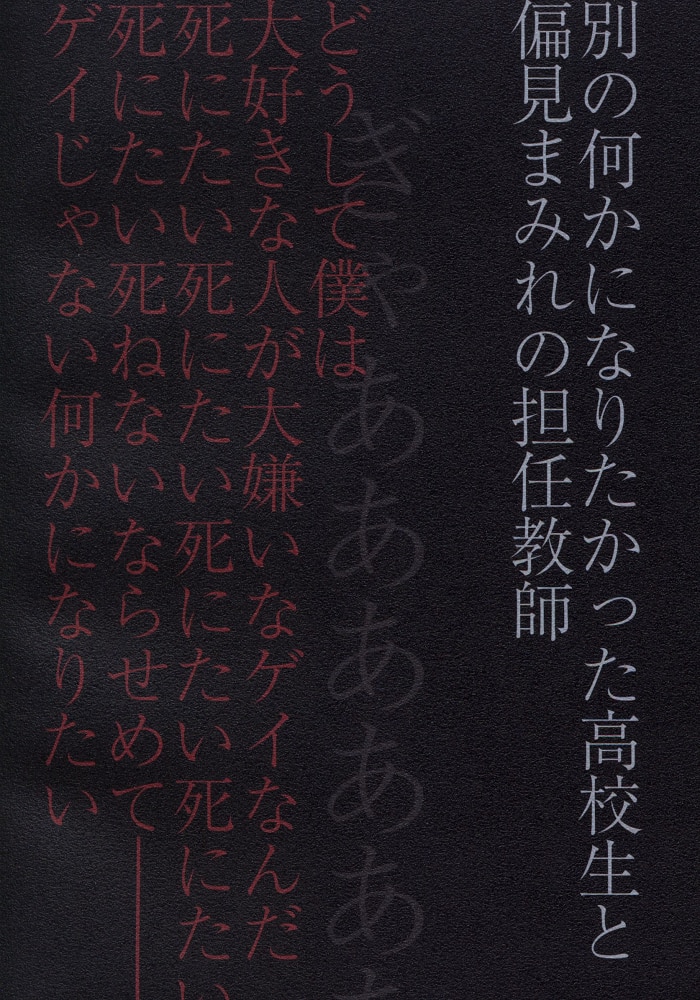 別の何かになりたかった高校生と
偏見まみれの担任教師
ぎゃあああああ
どうして僕は
大好きな人が大嫌いなゲイなんだ
死にたい死にたい死にたい死にたい
死にたい死ねないならせめて――
ゲイじゃない何かになりたい